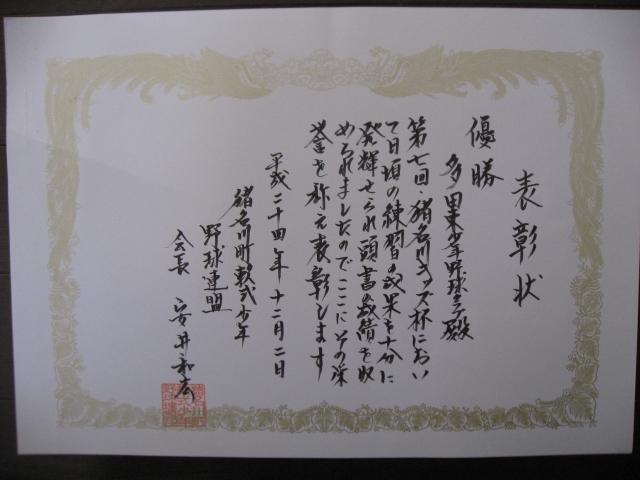 表彰状
優勝
多田東少年野球部殿
第七回・猪名川キッズ杯におい
て日頃の練習の成果を十分に
発揮せられ頭書の成績を収
められましたのでここにその栄
誉を称え表彰します
平成二十四年十二月二日
猪名川町軟式少年
野球連盟
会長 安井和